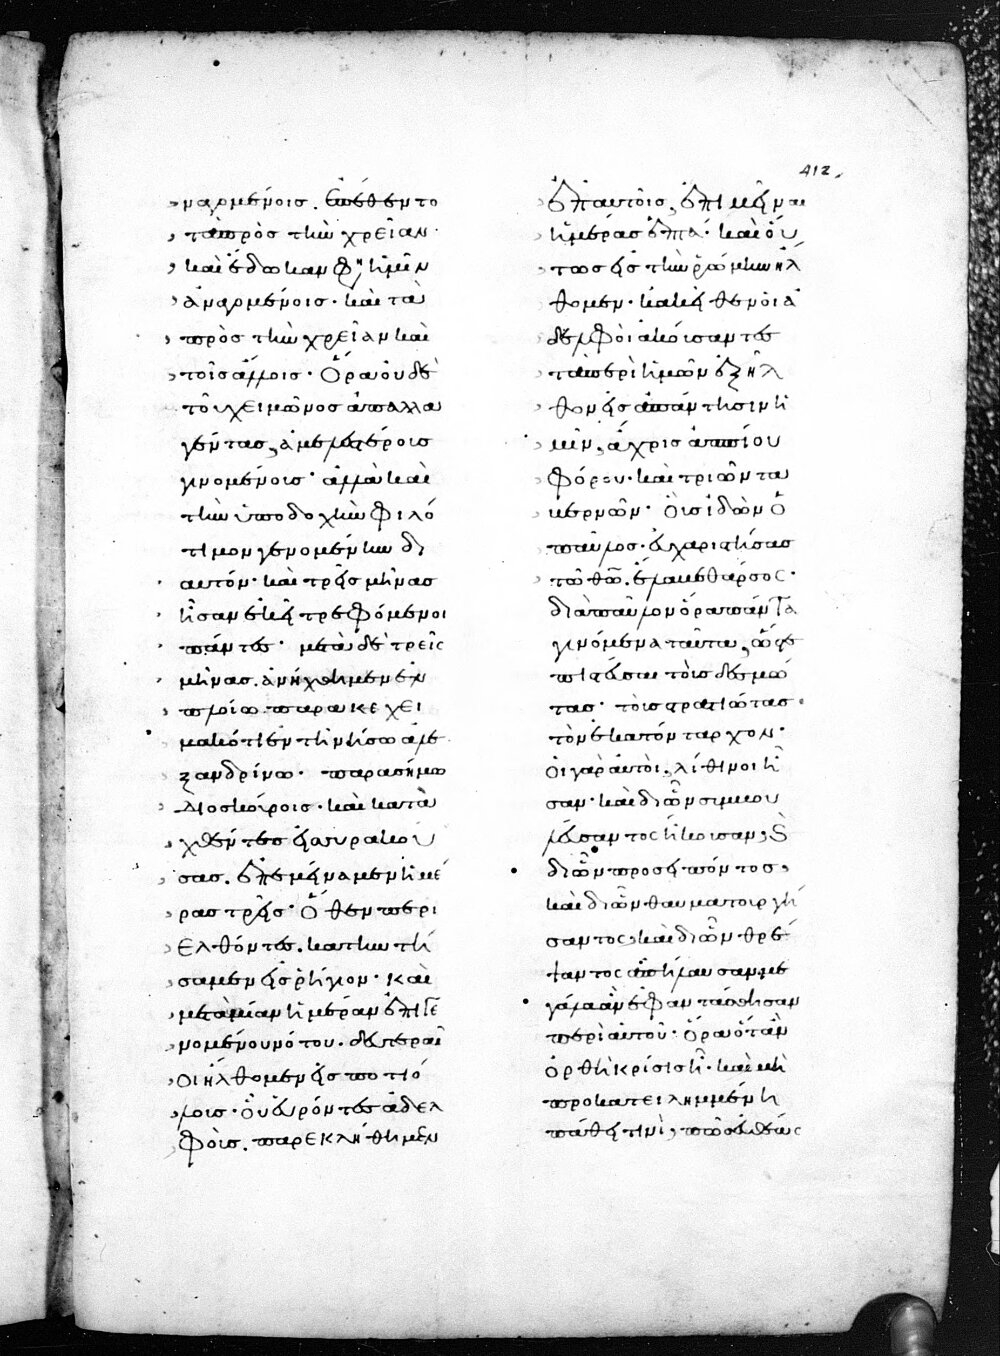 412
ναγομένοις. ἐπέθεντο
τὰ πρὸς τὴν χρείαν·
καὶ ἔδωκαν φη ἡμῖν
ἀναγομένοις· καὶ τὰ
πρὸς τὴν χρείαν καὶ
τοῖς ἄλλοις· Ὅρα οὐ δὲ
τοῦ χειμῶνος ἀπαλλα
γέντας, ἀμελεστέροις
γινομένοις· ἀλλὰ καὶ
τὴν ὑποδοχὴν φιλό
τιμον γενομένην δι
αυτόν· καὶ τρεῖς μῆνας
ἦσαν ἐκεῖ τρεφόμενοι
πάντες· μετὰ δὲ τρεῖς
μῆνας. ἀνήχθημεν ἐν
πλοίω παρακεχει
μακότι ἐν τῆ νήσω ἀλε
ξανδρίνω· παρασήμω
Διοσκούροις· καὶ κατα
χθέντες εἰς συρακού
σας. ἐπεμείναμεν ἡμέ
ρας τρεῖς· Ὅθεν περι
ελθόντες. κατηντή
σαμεν εἰς ῥήγιον· καὶ
μετὰ μίαν ἡμέραν ἐπιγε
νομένου νότου. δευτεραῖ
οι ἤλθομεν εἰς ποτιό
λους· Οὗ εὑρόντες ἀδελ
φοὺς. παρεκλήθημεν
ἐπ αυτοῖς, ἐπιμεῖναι
ἡμέρας ἑπτά· καὶ οὕ
τως εἰς τὴν ῥώμην ἤλ
θομεν· κακεῖθεν οἱ ἀ
δελφοὶ ἀκούσαντες
τὰ περὶ ἡμῶν ἐξῆλ
θον εἰς ἀπάντησιν ἡ
μῖν, ἄχρις ἀππίου
φόρου· καὶ τριῶν τα
βερνῶν· Οὓς ἰδὼν ὁ
παῦλος· εὐχαριστήσας
τῶ θῶ. ἔλαβε θάρσος·
διὰ παῦλον ὅρα πάντα
γινόμενα ταῦτα, ὥστε
πιστεῦσαι τοὺς δεσμώ
τας· τοὺς στρατιώτας·
τὸν ἑκατόνταρχον·
Οἱ γὰρ αὐτοὶ, λίθινοι ἦ
σαν· καὶ δι ὧν συμβου
λεύσαντος ἤκουσαν, ὃ
δι ὧν προσειπόντος,
καὶ δι ὧν θαυματουργή
σαντος, καὶ δι ὧν θρέ
ψαντος ἀπήλαυσαν, με
γάλα ἂν ἐφαντάσθησαν
περὶ αὐτοῦ· Ὅρα ὅταν
ὀρθὴ κρίσις ἦ· καὶ μὴ
προκατειλημμένη
πάθει τινὶ, πῶς εὐθέως